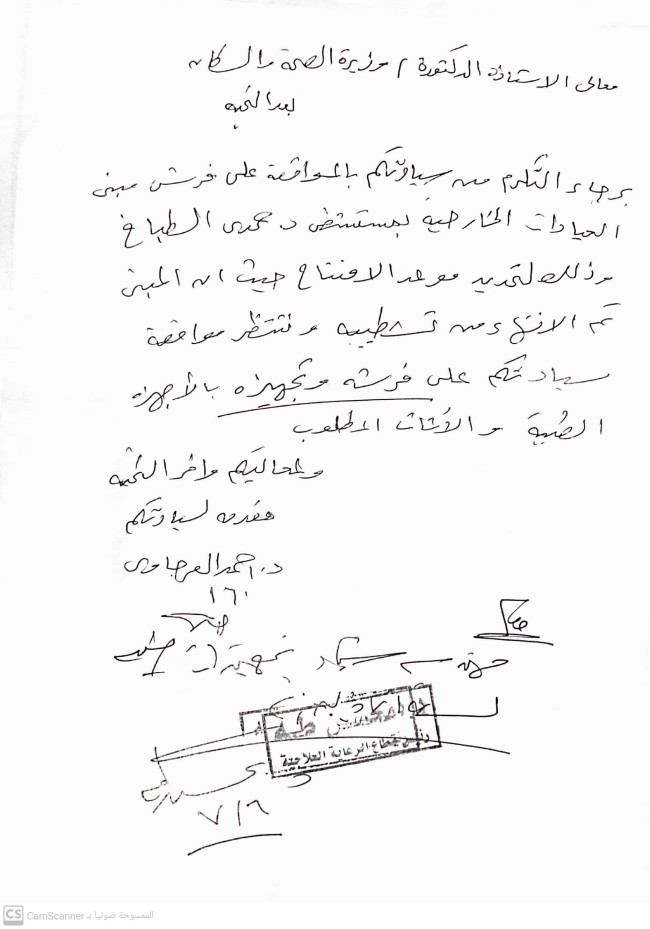 معالى الاستاذة الدكتورة / وزيرة الصحة والسكان
بعد التحية
برجاء التكرم من سيادتكم بالموافقة على فرش مبنى
العيادات الخارجية بمستشفى د. حمدى الطباخ
وذلك لتحديد موعد الافتتاح حيث ان المبنى
تم الانتهاء من تشطيبه وننتظر موافقة
سيادتكم على فرشه وتجهيزه بالأجهزة
الطبية والأثاث المطلوب
ولمعاليكم وافر التحية
مقدمه لسيادتكم
د. احمد العرجاوى
١٦٠
رئيس قطاع الرعاية العلاجية
٧/٦
CS CamScanner الممسوحة ضوئيا بـ